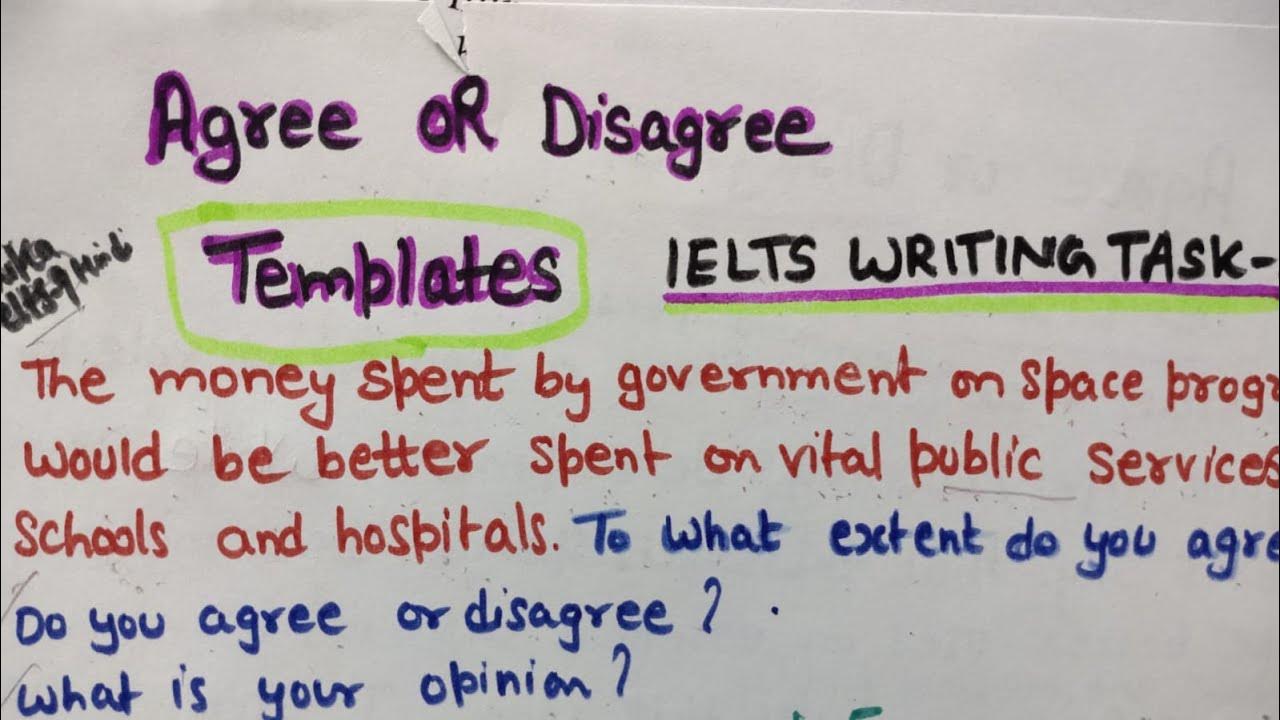 Agree OR Disagree
Templates
IELTS WRITING TASK-
The money spent by government on space progr
would be better spent on vital public services
schools and hospitals. To what extent do you agre
Do you agree or disagree?
What is your opinion?